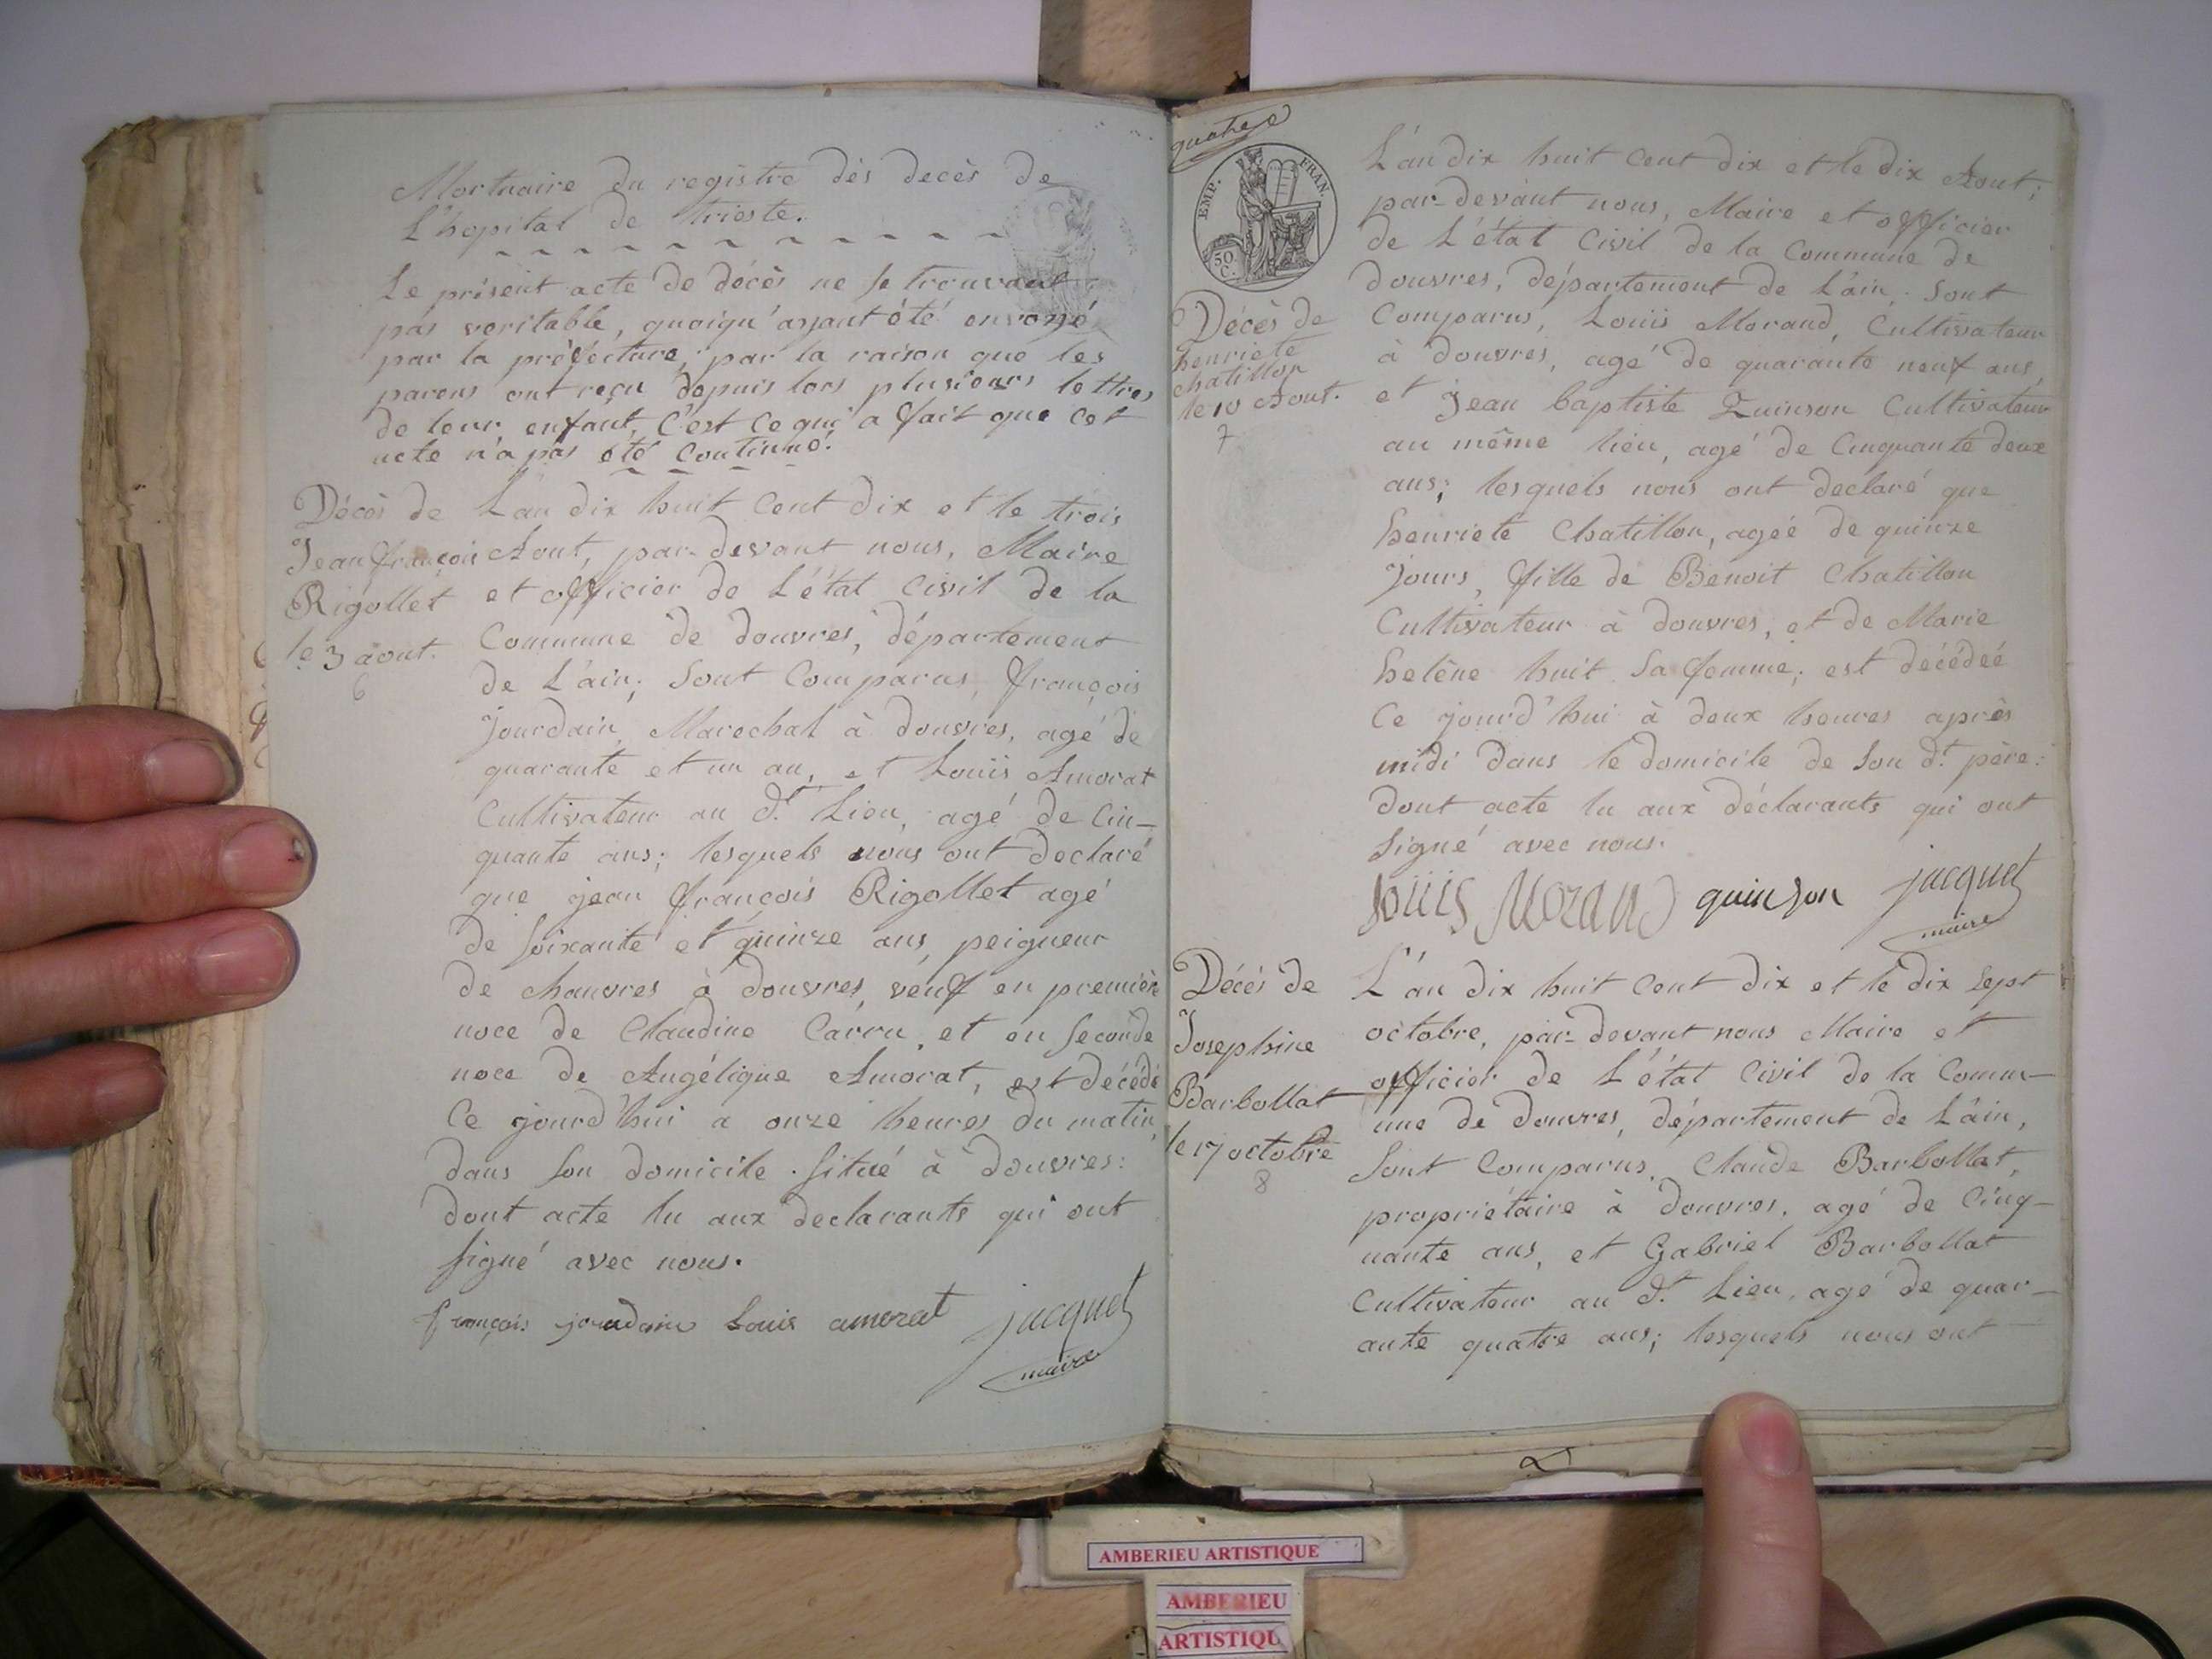 Mortuaire du registre dès decès de
L'hopital de trieste.
Le présent acte de décès ne se trouvant
pas veritable, quoiqu'ayant été envoyé
par la préfecture, par la raison que les
parens ont reçu depuis lors plusieurs lettres
de leur enfant, C'est ce qui a fait que cet
acte n'a pas été Continué.
Décès de
Jean françois
Rigollet
le 3 aout.
6
L'an dix huit cent dix et le trois
Aout, par-devant nous, Maire
et officier de L'état Civil de la
Commune de douvres, département
de L'ain; Sont Comparus, françois
Jourdain, Marechal à douvres, agé de
quarante et un an, et Louis Amorat
Cultivateur au d.t Lieu, agé de Cin-
quante ans; lesquels nous ont declaré
que jean françois Rigollet agé
de soixante et quinze ans, peigneur
de chanvres à douvres, veuf en première
noce de Claudine Carru, et en seconde
noce de Angélique Amorat, est décédé
Ce jourd'hui a onze heures du matin,
dans son domicile situé à douvres:
dont acte lu aux declarants qui ont
signé avec nous.
françois jourdain Louis amorat jacquet
maire
quatre
EMP. FRAN.
50
C.
Décès de
henriete
chatillon
le 10 Aout.
7
L'an dix huit cent dix et le dix Aout;
par-devant nous, Maire et officier
de L'état Civil de la Commune de
douvres, département de L'ain; Sont
Comparus, Louis Morand, Cultivateur
à douvres, agé de quarante neuf ans,
et Jean baptiste Quinson Cultivateur
au même lieu, agé de Cinquante deux
ans; lesquels nous ont declaré que
henriete Chatillon, agée de quinze
jours, fille de Benoit Chatillon
Cultivateur à douvres, et de Marie
helène huit sa femme; est décédée
Ce jourd'hui à deux heures après
midi dans le domicile de son d.t père:
dont acte lu aux déclarants qui ont
Signé avec nous.
Louis Morand quinson jacquet
maire
Décès de
Josephine
Barbollat
le 17 octobre
8
L'an dix huit cent dix et le dix sept
octobre, par-devant nous Maire et
officier de L'état Civil de la Comm-
une de douvres, département de L'ain,
Sont Comparus, Claude Barbollat,
propriétaire à douvres, agé de Cinq-
uante ans, et Gabriel Barbollat
Cultivateur au d.t Lieu, agé de quar-
ante quatre ans; lesquels nous ont
AMBERIEU ARTISTIQUE
AMBERIEU
ARTISTIQU